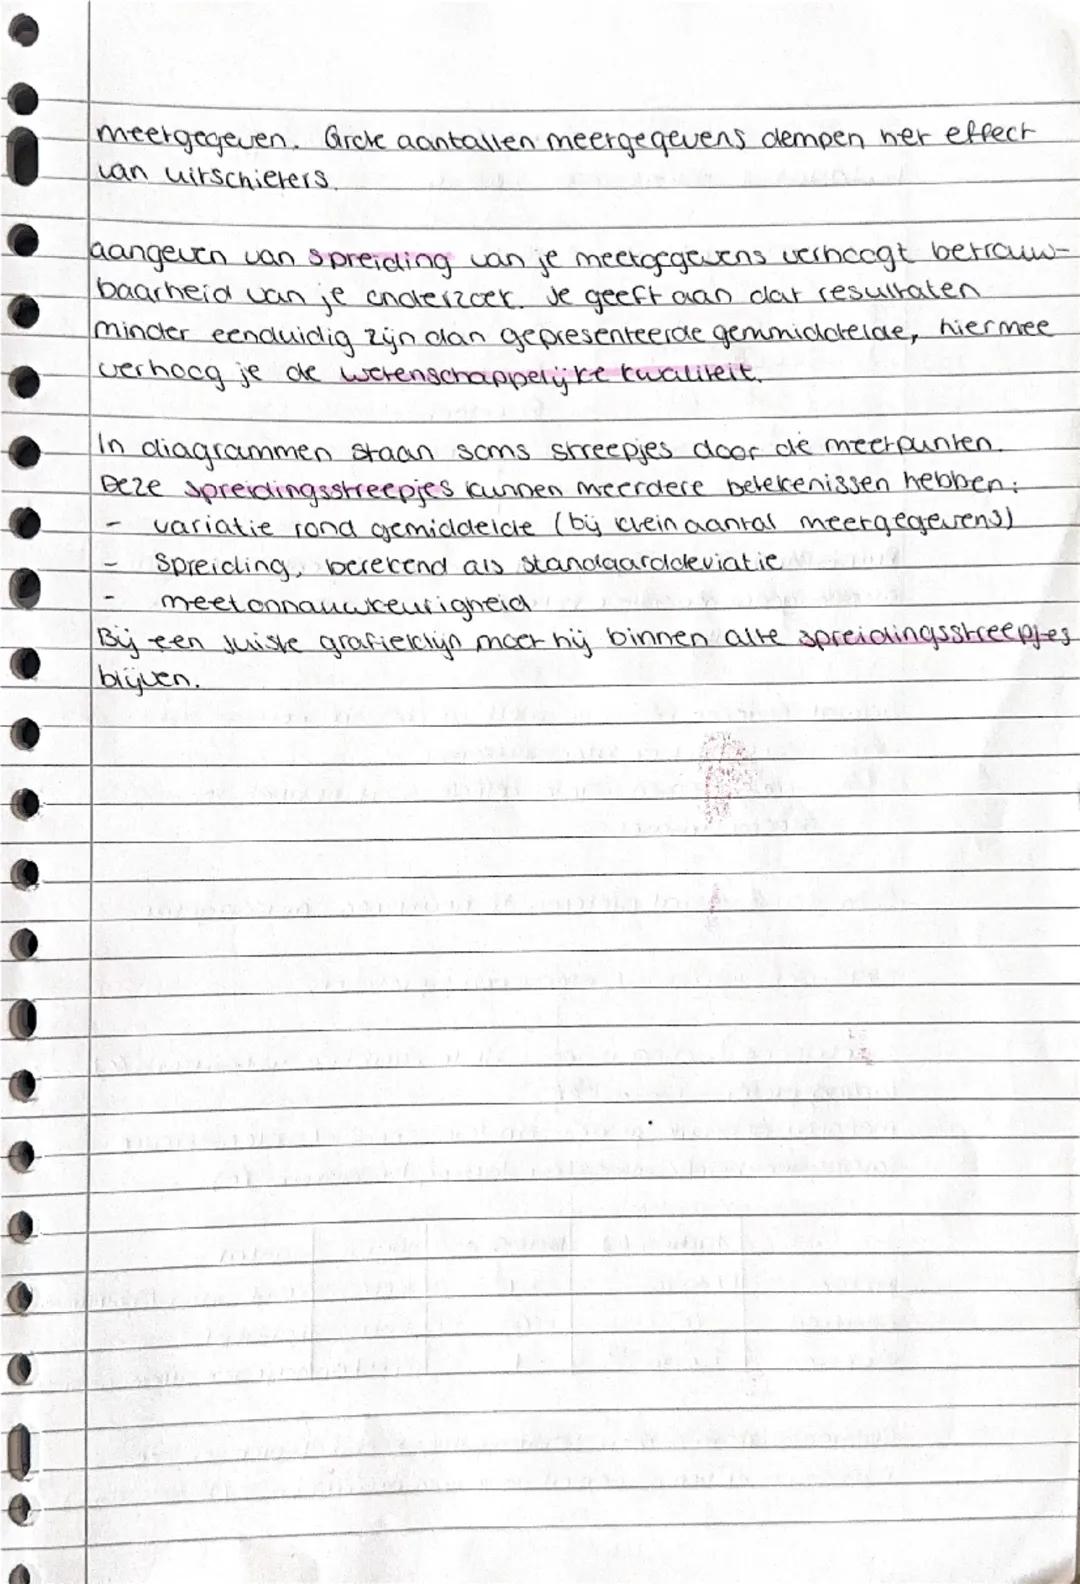 meetgegeven. Grote aantallen meetgegevens dempen het effect
van uitschieters.
aangeven van spreiding van je meetgegevens verhoogt betrouw-
baarheid van je onderzoek. Je geeft aan dat resultaten
minder eenduidig zijn dan gepresenteerde gemmiddelde, hiermee
verhoog je de wetenschappelijke kwaliteit.
In diagrammen staan soms streepjes door de meetpunten.
Deze spreidingsstreepjes kunnen meerdere betekenissen hebben:
- variatie rond gemiddelde (bij klein aantal meetgegevens)
- Spreiding, berekend als standaarddeviatie
- meetonnauwkeurigheid
Bij een juiste grafieklijn moet hij binnen alle spreidingsstreepjes
blijven.